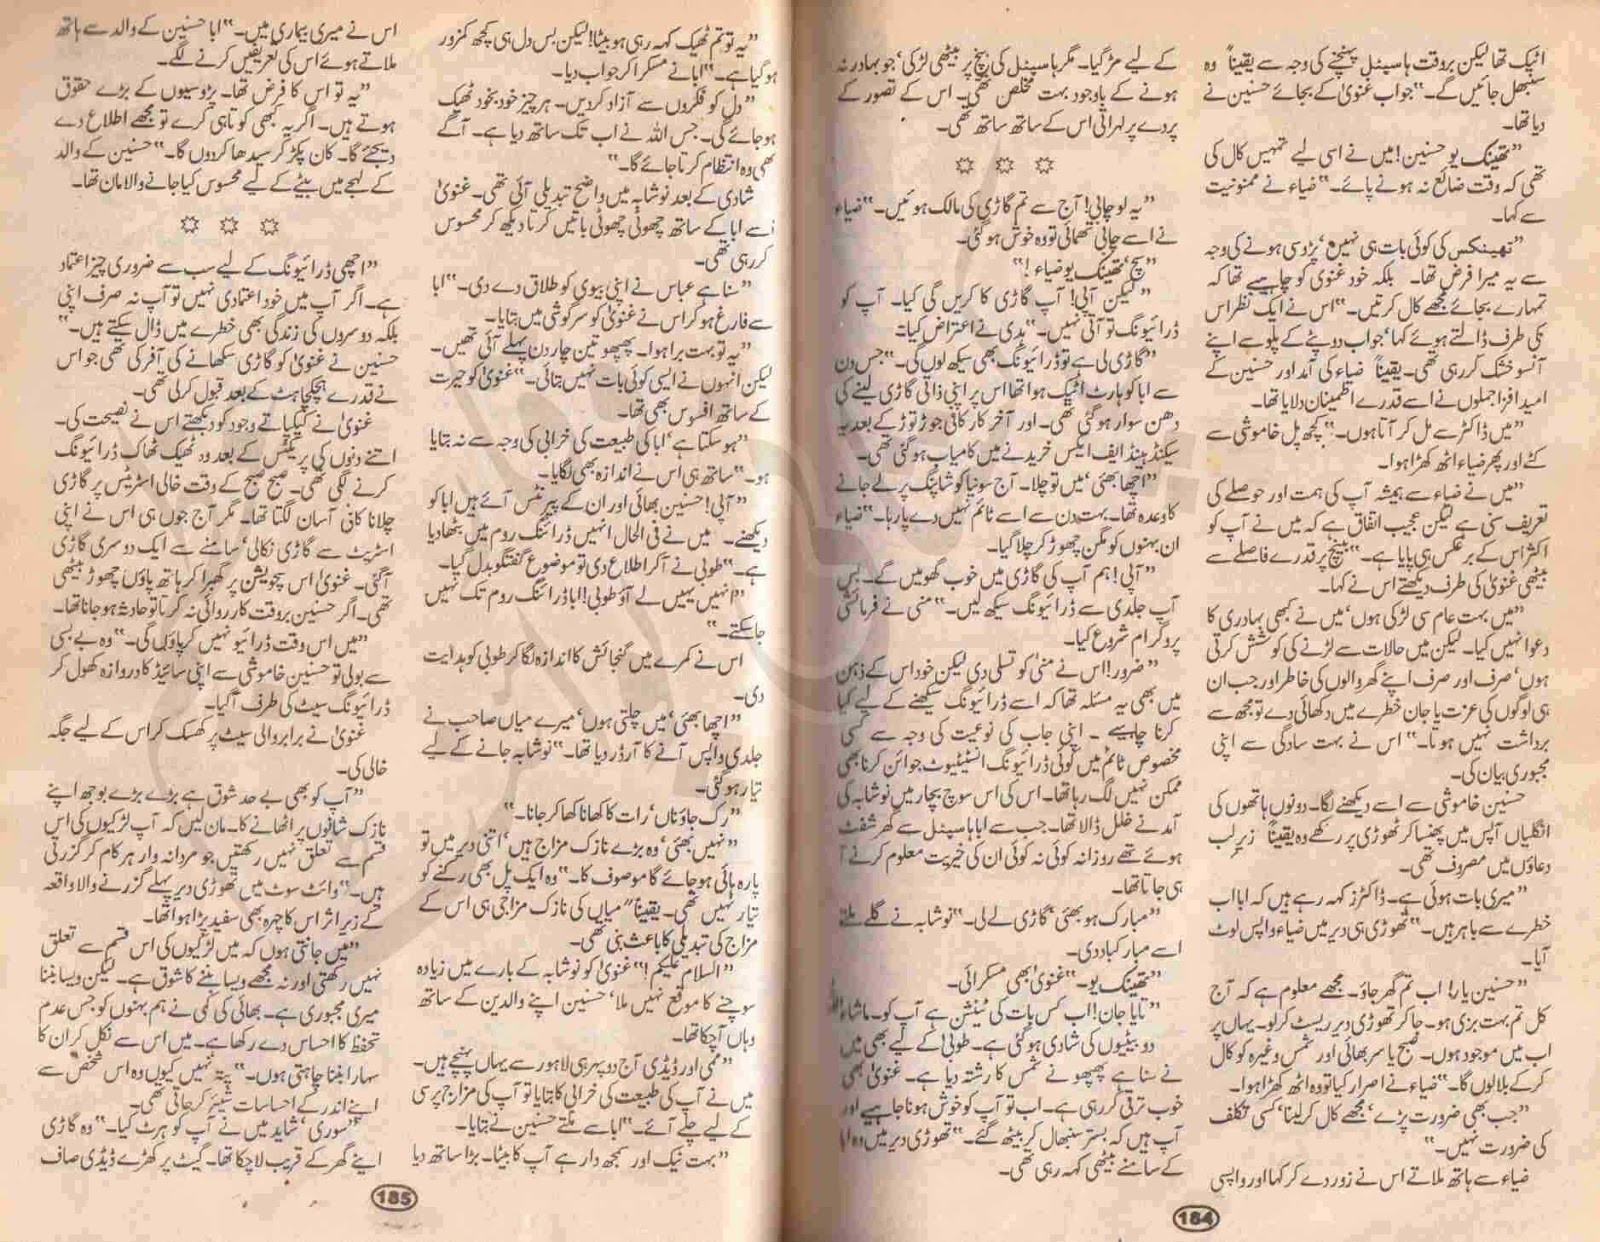 اٹیک تھا لیکن بروقت ہاسپٹل پہنچنے کی وجہ سے یقیناً وہ
سنبھل جائیں گے۔" جواب غنویٰ کے بجائے حسنین نے
دیا تھا۔
"تھینک یو حسنین! میں نے اسی لیے تمہیں کال کی
تھی کہ وقت ضائع نہ ہونے پائے۔" ضیاء نے ممنونیت
سے کہا۔
"تھینکس کی کوئی بات ہی نہیں، پڑوسی ہونے کی وجہ
سے یہ میرا فرض تھا۔ بلکہ خود غنویٰ کو چاہیے تھا کہ
تمہارے بجائے مجھے کال کرتیں۔" اس نے ایک نظر اس
کی طرف ڈالتے ہوئے کہا، جو اب دوپٹے کے پلو سے اپنے
آنسو خشک کررہی تھی۔ یقیناً ضیاء کی آمد اور حسنین کے
امید افزا جملوں نے اسے قدرے اطمینان دلایا تھا۔
"میں ڈاکٹر سے مل کر آتا ہوں۔" کچھ پل خاموشی سے
کٹے اور پھر ضیاء اٹھ کھڑا ہوا۔
"میں نے ضیاء سے ہمیشہ آپ کی ہمت اور حوصلے کی
تعریف سنی ہے لیکن عجیب اتفاق ہے کہ میں نے آپ کو
اکثر اس کے برعکس ہی پایا ہے۔" بینچ پر قدرے فاصلے سے
بیٹھی غنویٰ کی طرف دیکھتے اس نے کہا۔
"میں بہت عام سی لڑکی ہوں، میں نے کبھی بہادری کا
دعوا نہیں کیا۔ لیکن میں حالات سے لڑنے کی کوشش کرتی
ہوں، صرف اور صرف اپنے گھر والوں کی خاطر اور جب ان
ہی لوگوں کی عزت یا جان خطرے میں دکھائی دے تو مجھ سے
برداشت نہیں ہوتا۔" اس نے بہت سادگی سے اپنی
مجبوری بیان کی۔
حسنین خاموشی سے اسے دیکھنے لگا۔ دونوں ہاتھوں کی
انگلیاں آپس میں پھنسا کر ٹھوڑی پر رکھے وہ یقیناً زیر لب
دعاؤں میں مصروف تھی۔
"میری بات ہوئی ہے۔ ڈاکٹرز کہہ رہے ہیں کہ ابا اب
خطرے سے باہر ہیں۔" تھوڑی ہی دیر میں ضیاء واپس لوٹ
آیا۔
"حسنین یار! اب تم گھر جاؤ۔ مجھے معلوم ہے کہ آج
کل تم بہت بزی ہو۔ جا کر تھوڑی دیر ریسٹ کرلو۔ یہاں پر
اب میں موجود ہوں۔ صبح یاسر بھائی اور شمس وغیرہ کو کال
کرکے بلا لوں گا۔" ضیاء نے اصرار کیا تو وہ اٹھ کھڑا ہوا۔
"جب بھی ضرورت پڑے، مجھے کال کرلینا، کسی تکلف
کی ضرورت نہیں۔"
ضیاء سے ہاتھ ملاتے اس نے زور دے کر کہا اور واپسی
کے لیے مڑ گیا۔ مگر ہاسپٹل کی بینچ پر بیٹھی لڑکی، جو بہادر نہ
ہونے کے باوجود بہت مخلص تھی۔ اس کے تصور کے
پردے پر لہراتی اس کے ساتھ ساتھ تھی۔
"یہ لو چابی! آج سے تم گاڑی کی مالک ہوئیں۔" ضیاء
نے اسے چابی تھمائی تو وہ خوش ہو گئی۔
"سچ، تھینک یو ضیاء!"
"لیکن آپی! آپ گاڑی کا کریں گی کیا۔ آپ کو
ڈرائیونگ تو آتی نہیں۔" ہدیٰ نے اعتراض کیا۔
"گاڑی لی ہے تو ڈرائیونگ بھی سیکھ لوں گی۔" جس دن
سے ابا کو ہارٹ اٹیک ہوا تھا اس پر اپنی ذاتی گاڑی لینے کی
دھن سوار ہو گئی تھی۔ اور آخر کار کافی جوڑ توڑ کے بعد یہ
سیکنڈ ہینڈ ایف ایکس خریدنے میں کامیاب ہو گئی تھی۔
"اچھا بھئی، میں تو چلا۔ آج سونیا کو شاپنگ پر لے جانے
کا وعدہ تھا۔ بہت دن سے اسے ٹائم نہیں دے پا رہا۔" ضیاء
ان بہنوں کو مگن چھوڑ کر چلا گیا۔
"آپی! ہم آپ کی گاڑی میں خوب گھومیں گے۔ بس
آپ جلدی سے ڈرائیونگ سیکھ لیں۔" منی نے فرمائشی
پروگرام شروع کیا۔
"ضرور! اس نے منی کو تسلی دی لیکن خود اس کے ذہن
میں بھی یہ مسئلہ تھا کہ اسے ڈرائیونگ سیکھنے کے لیے کیا
کرنا چاہیے۔ اپنی جاب کی نوعیت کی وجہ سے کسی
مخصوص ٹائم میں کوئی ڈرائیونگ انسٹیٹیوٹ جوائن کرنا بھی
ممکن نہیں لگ رہا تھا۔ اس کی اس سوچ بچار میں نوشابہ کی
آمد نے خلل ڈالا تھا۔ جب سے ابا ہاسپٹل سے گھر شفٹ
ہوئے تھے روزانہ کوئی نہ کوئی ان کی خیریت معلوم کرنے آ
ہی جاتا تھا۔
"مبارک ہو بھئی، گاڑی لے لی۔" نوشابہ نے گلے ملتے
اسے مبارکباد دی۔
"تھینک یو۔" غنویٰ بھی مسکرائی۔
"تایا جان! اب کس بات کی ٹینشن ہے آپ کو۔ ماشاء اللہ
دو بیٹیوں کی شادی ہو گئی ہے۔ طوبیٰ کے لیے بھی میں
نے سنا ہے پھپھو نے شمس کا رشتہ دیا ہے۔ غنویٰ بھی
خوب ترقی کررہی ہے۔ اب تو آپ کو خوش ہونا چاہیے اور
آپ ہیں کہ بستر سنبھال کر بیٹھ گئے۔" تھوڑی دیر میں وہ ابا
کے سامنے بیٹھی کہہ رہی تھی۔
184
"یہ تو تم ٹھیک کہہ رہی ہو بیٹا! لیکن بس دل ہی کچھ کمزور
ہو گیا ہے۔" ابا نے مسکرا کر جواب دیا۔
"دل کو فکروں سے آزاد کردیں۔ ہر چیز خود بخود ٹھیک
ہو جائے گی۔ جس اللہ نے اب تک ساتھ دیا ہے۔ آگے
بھی وہ انتظام کرتا جائے گا۔"
شادی کے بعد نوشابہ میں واضح تبدیلی آئی تھی۔ غنویٰ
اسے ابا کے ساتھ چھوٹی چھوٹی باتیں کرتا دیکھ کر محسوس
کررہی تھی۔
"سنا ہے عباس نے اپنی بیوی کو طلاق دے دی۔" ابا
سے فارغ ہو کر اس نے غنویٰ کو سرگوشی میں بتایا۔
"یہ تو بہت برا ہوا۔ پھپھو تین چار دن پہلے آئی تھیں۔
لیکن انہوں نے ایسی کوئی بات نہیں بتائی۔" غنویٰ کو حیرت
کے ساتھ افسوس بھی تھا۔
"ہو سکتا ہے، ابا کی طبیعت کی خرابی کی وجہ سے نہ بتایا
ہو۔" ساتھ ہی اس نے اندازہ بھی لگایا۔
"آپی! حسنین بھائی اور ان کے پیرنٹس آئے ہیں ابا کو
دیکھنے۔ میں نے فی الحال انہیں ڈرائنگ روم میں بٹھا دیا
ہے۔" طوبیٰ نے آکر اطلاع دی تو موضوع گفتگو بدل گیا۔
"انہیں یہیں لے آؤ طوبیٰ! ابا ڈرائنگ روم تک نہیں
جاسکتے۔"
اس نے کمرے میں گنجائش کا اندازہ لگا کر طوبیٰ کو ہدایت
دی۔
"اچھا بھئی، میں چلتی ہوں، میرے میاں صاحب نے
جلدی واپس آنے کا آرڈر دیا تھا۔" نوشابہ جانے کے لیے
تیار ہو گئی۔
"رک جاؤ ناں، رات کا کھانا کھا کر جانا۔"
"نہیں بھئی، وہ بڑے نازک مزاج ہیں، اتنی دیر میں تو
پارہ ہائی ہو جائے گا موصوف کا۔" وہ ایک پل بھی رکنے کو
تیار نہیں تھی۔ یقیناً" میاں کی نازک مزاجی ہی اس کے
مزاج کی تبدیلی کا باعث بنی تھی۔
"السلام علیکم!" غنویٰ کو نوشابہ کے بارے میں زیادہ
سوچنے کا موقع نہیں ملا، حسنین اپنے والدین کے ساتھ
وہاں آچکا تھا۔
"ممی اور ڈیڈی آج دوپہر ہی لاہور سے یہاں پہنچے ہیں۔
میں نے آپ کی طبیعت کی خرابی کا بتایا تو آپ کی مزاج پرسی
کے لیے چلے آئے۔" ابا سے ملتے حسنین نے بتایا۔
"بہت نیک اور سمجھ دار ہے آپ کا بیٹا۔ بڑا ساتھ دیا
اس نے میری بیماری میں۔" ابا حسنین کے والد سے ہاتھ
ملاتے ہوئے اس کی تعریفیں کرنے لگے۔
"یہ تو اس کا فرض تھا۔ پڑوسیوں کے بڑے حقوق
ہوتے ہیں۔ اگر یہ کبھی کوتاہی کرے تو مجھے اطلاع دے
دیجئے گا۔ کان پکڑ کر سیدھا کردوں گا۔" حسنین کے والد
کے لہجے میں بیٹے کے لیے محسوس کیا جانے والا مان تھا۔
"اچھی ڈرائیونگ کے لیے سب سے ضروری چیز اعتماد
ہے۔ اگر آپ میں خود اعتمادی نہیں تو آپ نہ صرف اپنی
بلکہ دوسروں کی زندگی بھی خطرے میں ڈال سکتے ہیں۔"
حسنین نے غنویٰ کو گاڑی سکھانے کی آفر کی تھی جو اس
نے قدرے ہچکچاہٹ کے بعد قبول کرلی تھی۔
غنویٰ نے کپکپاتے وجود کو دیکھتے اس نے نصیحت کی۔
اتنے دنوں کی پریکٹس کے بعد وہ ٹھیک ٹھاک ڈرائیونگ
کرنے لگی تھی۔ صبح صبح کے وقت خالی اسٹریٹس پر گاڑی
چلانا کافی آسان لگتا تھا۔ مگر آج جوں ہی اس نے اپنی
اسٹریٹ سے گاڑی نکالی، سامنے سے ایک دوسری گاڑی
آگئی۔ غنویٰ اس سچویشن پر گھبرا کر ہاتھ پاؤں چھوڑ بیٹھی
تھی۔ اگر حسنین بروقت کارروائی نہ کرتا تو حادثہ ہو جانا تھا۔
"میں اس وقت ڈرائیو نہیں کرپاؤں گی۔" وہ بے بسی
سے بولی تو حسنین خاموشی سے اپنی سائیڈ کا دروازہ کھول کر
ڈرائیونگ سیٹ کی طرف آگیا۔
غنویٰ نے برابر والی سیٹ پر کھسک کر اس کے لیے جگہ
خالی کی۔
"آپ کو بھی بے حد شوق ہے بڑے بڑے بوجھ اپنے
نازک شانوں پر اٹھانے کا۔ مان لیں کہ آپ لڑکیوں کی اس
قسم سے تعلق نہیں رکھتیں جو مردانہ وار ہر کام کر گزرتی
ہیں۔" وائٹ سوٹ میں تھوڑی دیر پہلے گزرنے والا واقعہ
کے زیر اثر اس کا چہرہ بھی سفید پڑا ہوا تھا۔
"میں جانتی ہوں کہ میں لڑکیوں کی اس قسم سے تعلق
نہیں رکھتی اور نہ مجھے ویسا بننے کا شوق ہے۔ لیکن ویسا بننا
میری مجبوری ہے۔ بھائی کی کمی نے ہم بہنوں کو جس عدم
تحفظ کا احساس دے رکھا ہے۔ میں اس سے نکل کر ان کا
سہارا بننا چاہتی ہوں۔" پتہ نہیں کیوں وہ اس شخص سے
اپنے اندر کے احساسات شیئر کرجاتی تھی۔
"سوری، شاید میں نے آپ کو ہرٹ کیا۔" وہ گاڑی
اپنے گھر کے قریب لا چکا تھا۔ گیٹ پر کھڑے ڈیڈی صاف
185